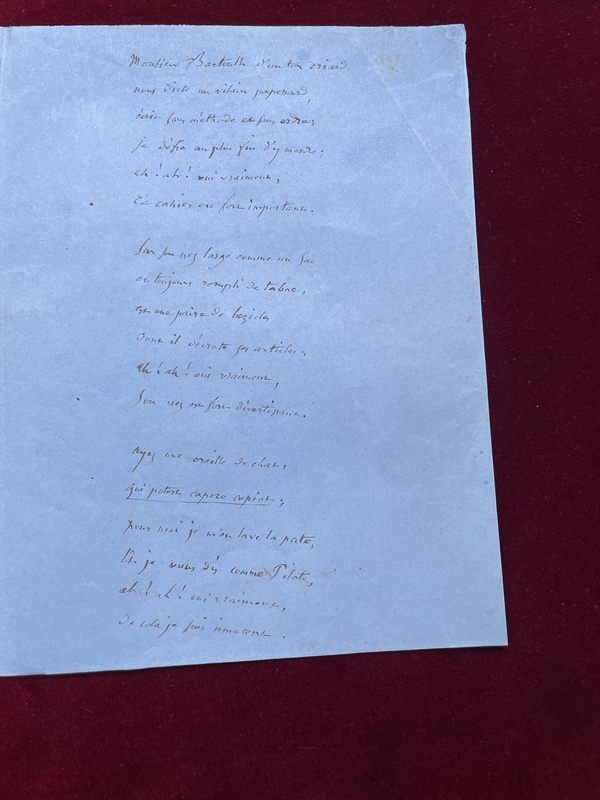 Monsieur d'un ton criard
nous dicte un vilain paperard,
écrit sans méthode et sans ordre;
je défie au plus fin d'y mordre;
ah! ah! oui vraiment,
Ce cahier est fort important.
Sur son nez large comme un soc
et toujours rempli de tabac,
est une paire de bezicles
Dont il décrote ses articles,
ah! ah! oui vraiment,
Son nez est fort divertissant.
Ayez une oreille de chat,
qui potest capere capiat;
pour moi je m'en lave la patte,
Et je vous dis comme Pilate,
ah! ah! oui vraiment,
De cela je suis innocent.